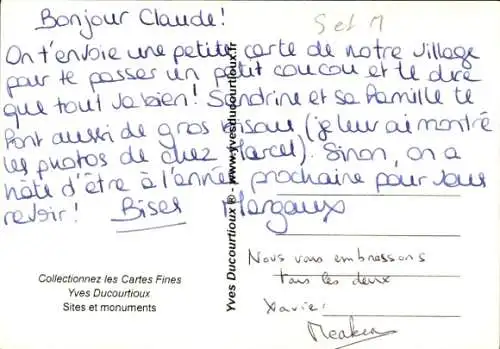 Bonjour Claude!
S et M
On t'envoie une petite carte de notre village
pour te passer un petit coucou et te dire
que tout va bien! Sandrine et sa famille te
font aussi de gros bisous (je leur ai montré
les photos de chez Marcel). Sinon, on a
hâte d'être à l'année prochaine pour vous
revoir! Bises Margaux
Yves Ducourtioux ® - www.yvesducourtioux.fr
Nous vous embrassons
tous les deux
Xavier
Collectionnez les Cartes Fines
Yves Ducourtioux
Sites et monuments